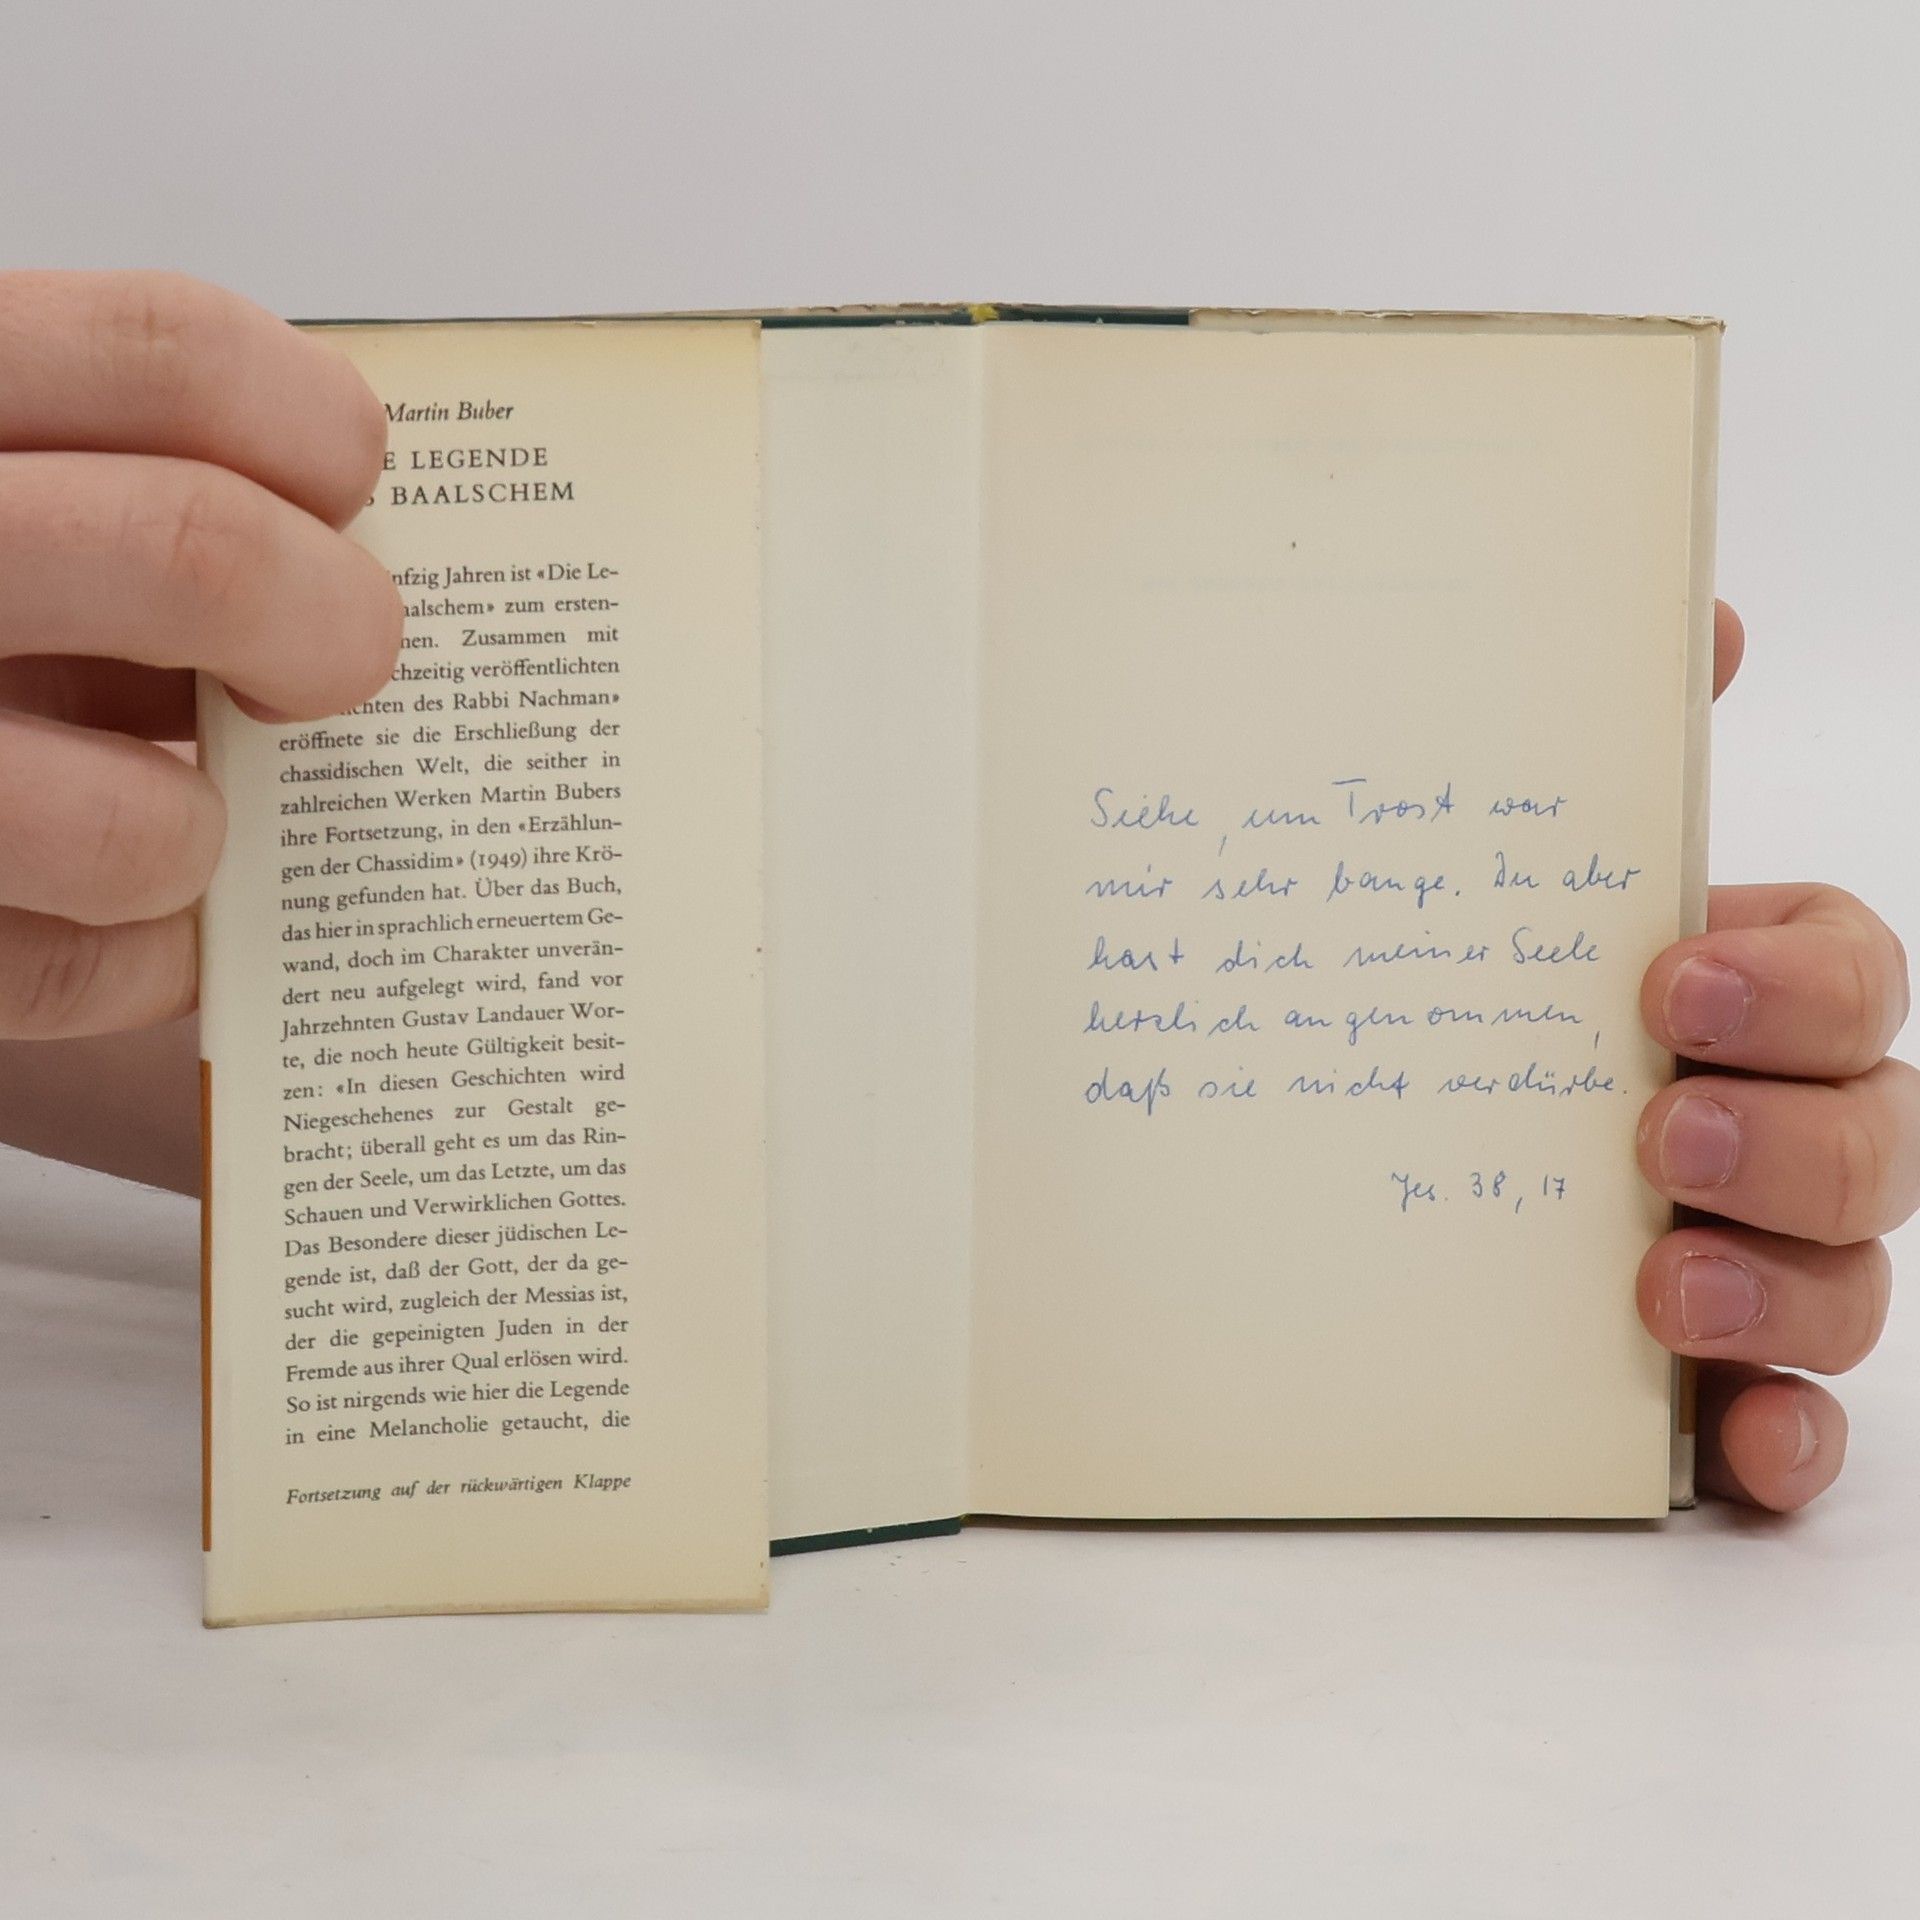 Martin Buber
LEGENDE
BAALSCHEM
Jahren ist «Die Le-
zum ersten-
Zusammen mit
veröffentlichten
des Rabbi Nachman»
eröffnete sie die Erschließung der
chassidischen Welt, die seither in
zahlreichen Werken Martin Bubers
ihre Fortsetzung, in den «Erzählun-
gen der Chassidim» (1949) ihre Krö-
nung gefunden hat. Über das Buch,
das hier in sprachlich erneuertem Ge-
wand, doch im Charakter unverän-
dert neu aufgelegt wird, fand vor
Jahrzehnten Gustav Landauer Wor-
te, die noch heute Gültigkeit besit-
zen: «In diesen Geschichten wird
Niegeschehenes zur Gestalt ge-
bracht; überall geht es um das Rin-
gen der Seele, um das Letzte, um das
Schauen und Verwirklichen Gottes.
Das Besondere dieser jüdischen Le-
gende ist, daß der Gott, der da ge-
sucht wird, zugleich der Messias ist,
der die gepeinigten Juden in der
Fremde aus ihrer Qual erlösen wird.
So ist nirgends wie hier die Legende
in eine Melancholie getaucht, die
Fortsetzung auf der rückwärtigen Klappe
Siehe, um Trost war
mir sehr bange. Du aber
hast dich meiner Seele
herzlich angenommen,
daß sie nicht verdürbe.
Jes. 38, 17